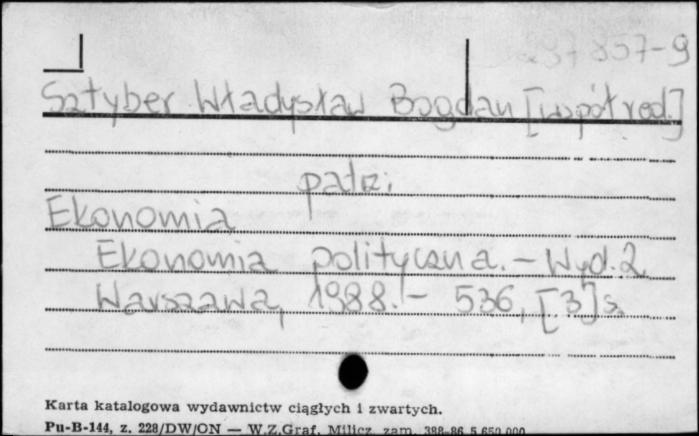 857-9
Sztyber Władysław Bogdan [współred.]
patrz:
Ekonomia
Ekonomia polityczna. - Wyd. 2
Warszawa, 1988. - 536, [3] s.
Karta katalogowa wydawnictw ciągłych i zwartych.
Pu-B-144, z. 228/DW/ON — W.Z.Graf. Milicz zam. 388-86 5.650.000